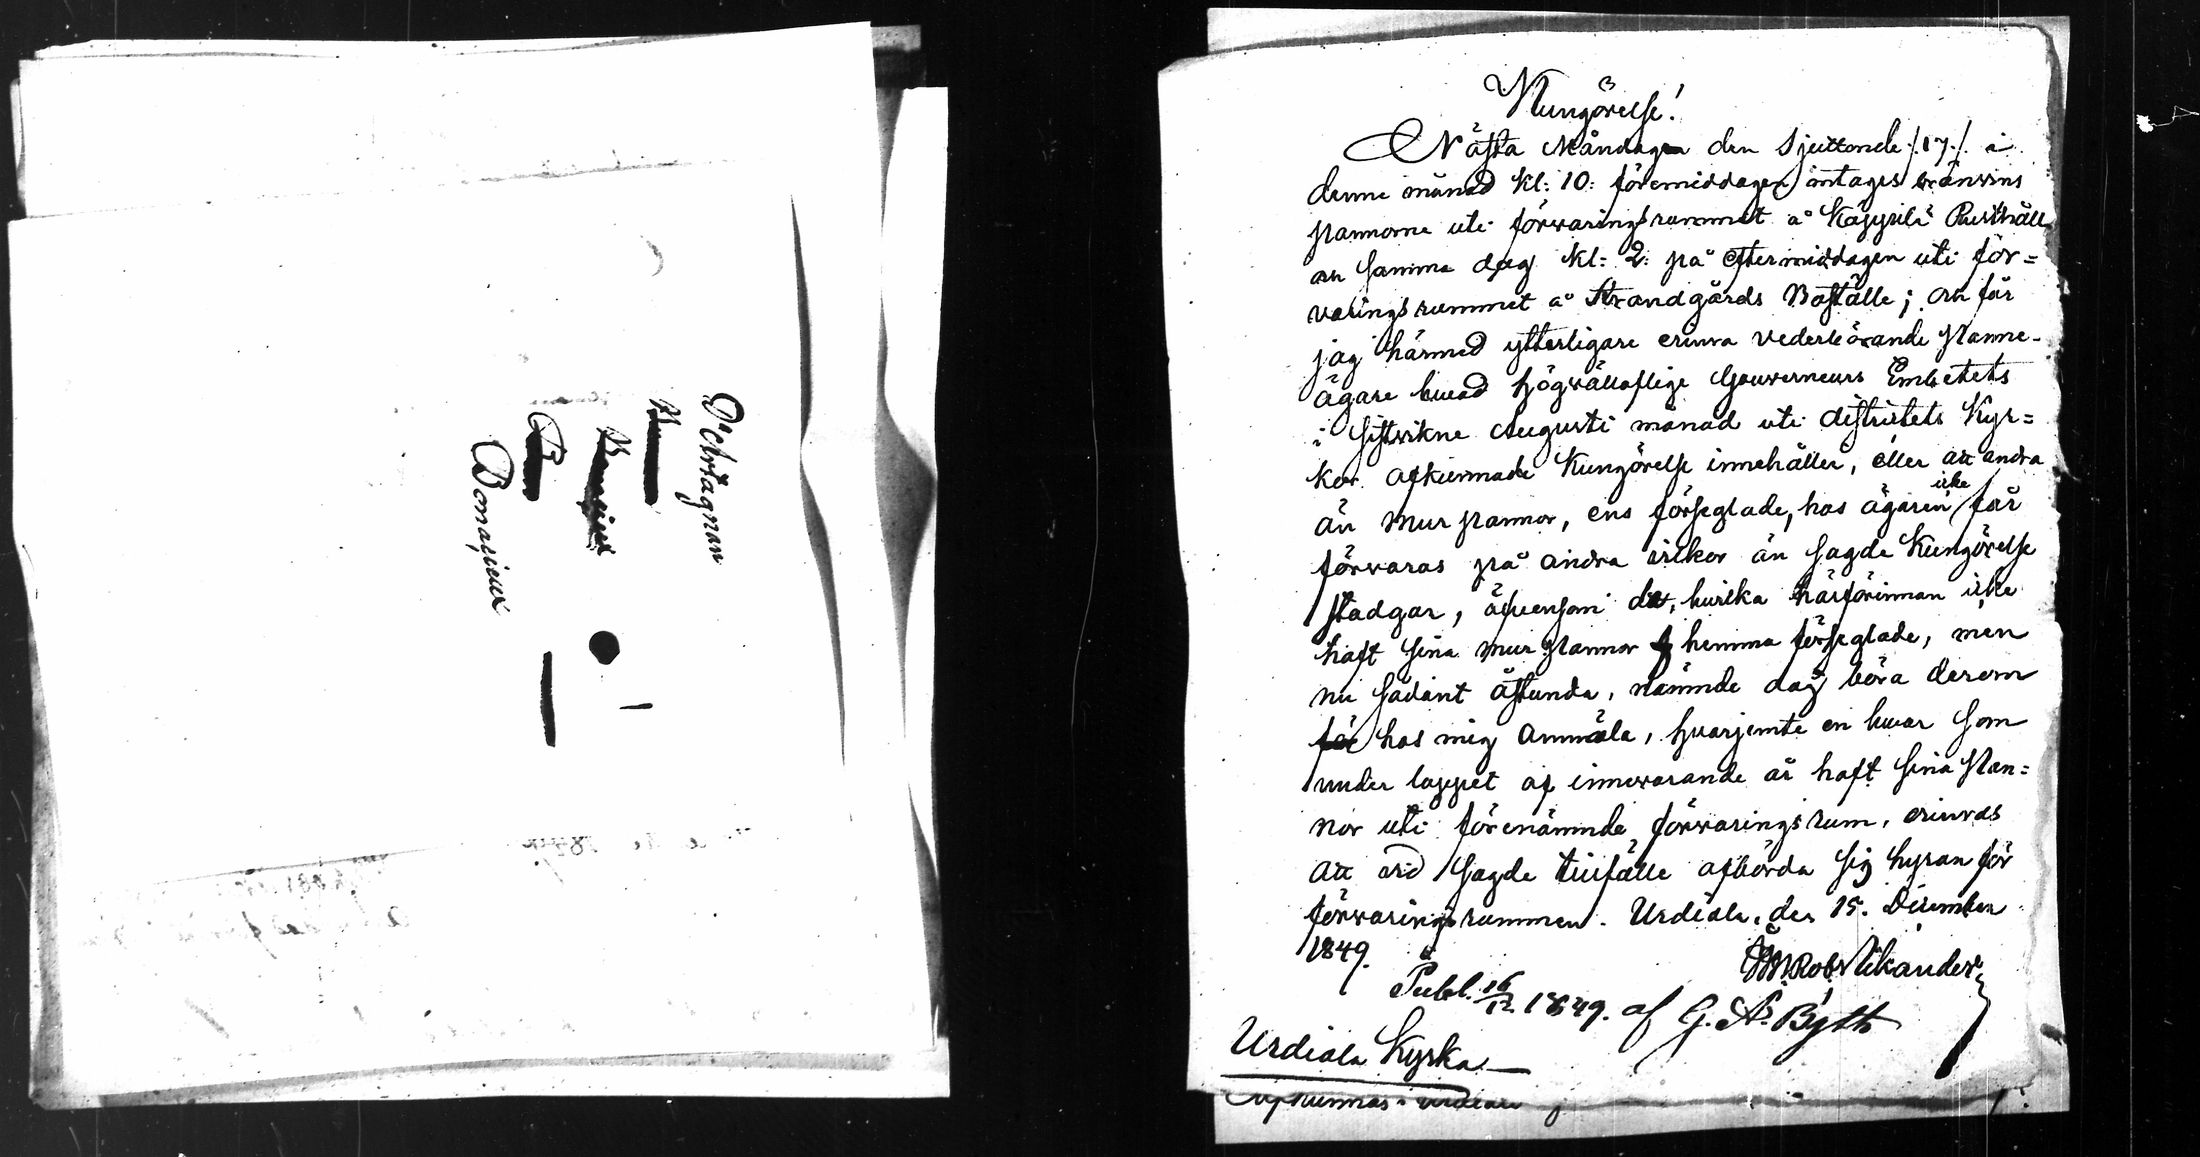 D'Artagnan
Bonasieux
Kungörelse!
Nästa Måndag den Sjuttonde /:17:/ i
denne månad kl: 10: föremiddagen intages bränvins
pannorne uti förvaringsrummet å Käppilä Rusthåll
och samma dag kl: 2: på eftermiddagen uti för=
varingsrummet å Strandgårds Boställe; och får
jag härmed ytterligare erinra vederbörande Panne-
ägare hwad Högvälloflige Gouverneurs Embetets
i sistvikne Augusti månad uti districtets Kyr=
kor afkunnade Kungörelse innehåller, eller att andra
än Murpannor, ens förseglade, hos ägaren icke får
förvaras på andra vilkor än sagde Kungörelse
stadgar, äfvensom de, hvilka härförinnan icke
haft sina murpannor hemma förseglade, men
nu sådant åstunda, nämnde dag böra derom
hos mig anmäla, hvarjemte en hwar som
under loppet af innevarande år haft sina Pan=
nor uti förenämnde förvaringsrum, erinras
att vid sagde tillfälle afbörda sig hyran för
förvaringsrummen. Urdiala, den 15. December
1849.
Rob. Vikander
Publ. 16/12 1849. af G. A. Byth
Urdiala Kyrka